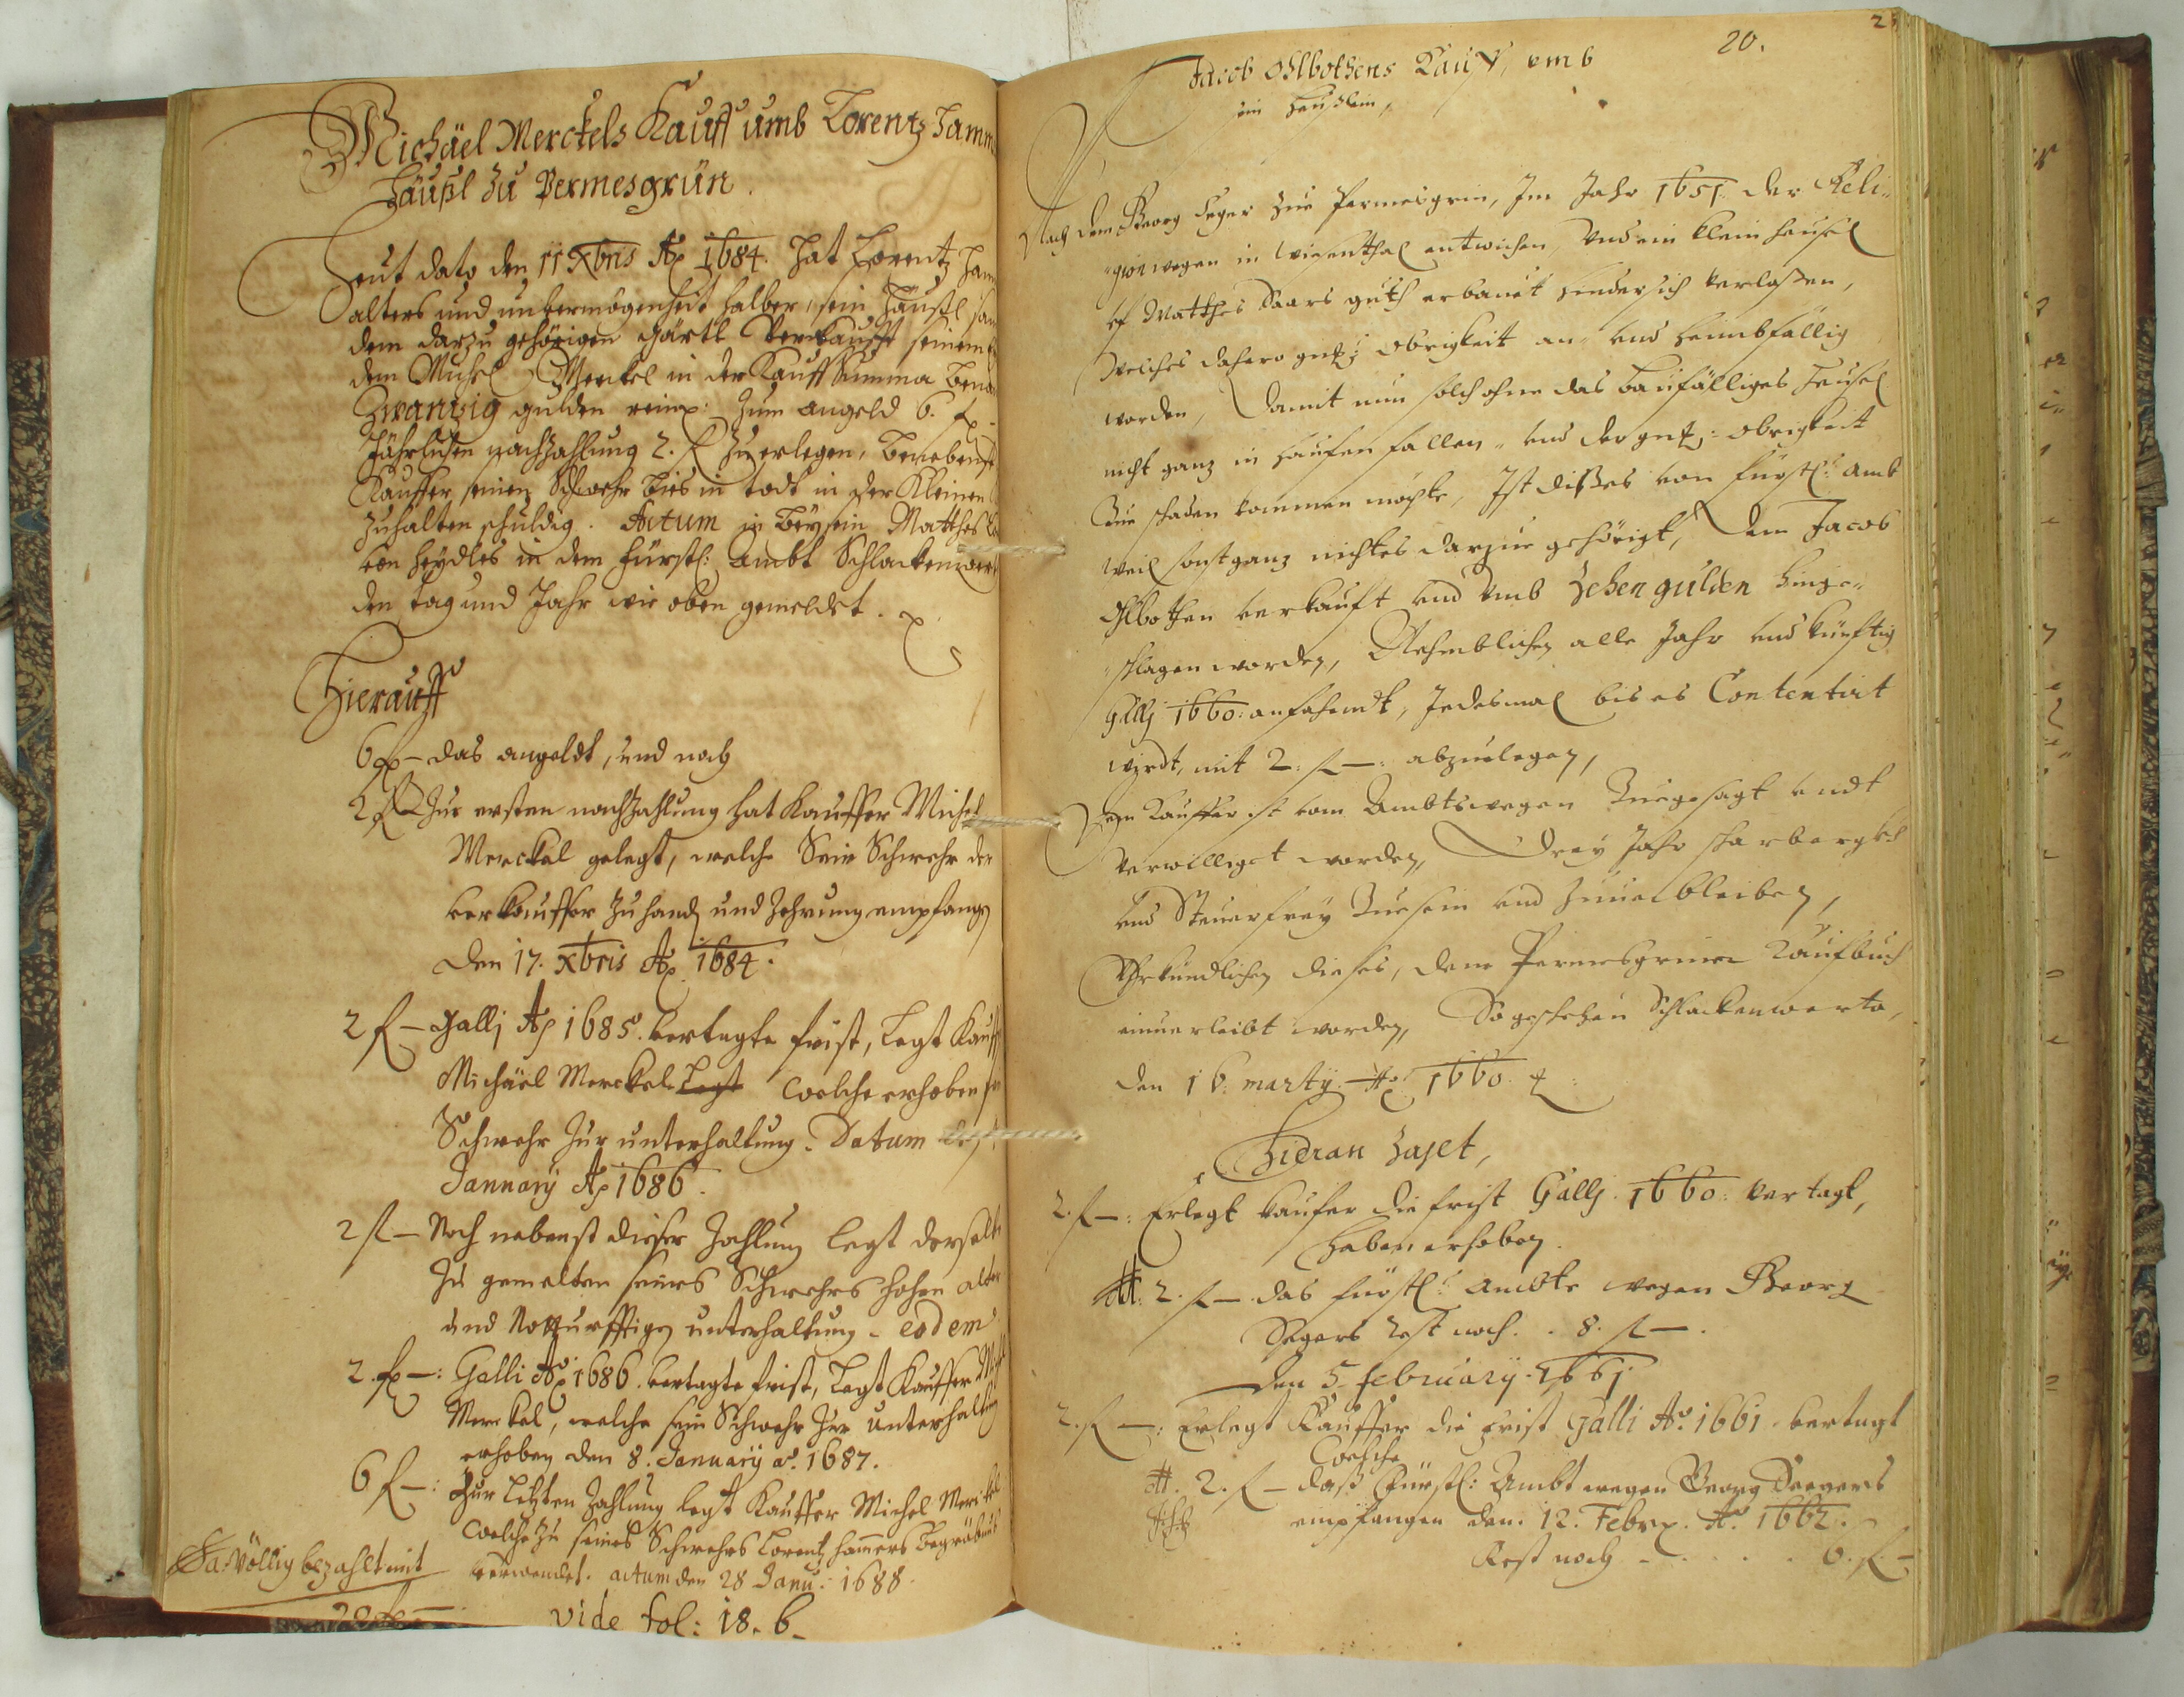 Michäel Merckels Kauff umb Lorentz Hamm
Häußl zu Permesgrün.
Heut dato den 11 Xbris Ao 1684. hat Lorentz Ham
alters und unvermögenheit halber, sein Häußl sam
dem darzu gehörigen gärtl verkaufft seinem
dem Michel Merckel in der Kauff Summa Benant
Zwantzig gulden reinp: Zum angeld 6. f
Jährlichen nachzahlung 2. f zu erlegen, Benebenst
Kauffer seinen Schwehr bies in todt in der Kleinen
zuhalten schuldig. Actum in beysein Matthes
von Heydles in dem Fürstl: Ambt Schlackenwert
den tag und Jahr wie oben gemeldet.
Hierauff
6 f – das angeldt, und noch
2 f – Zur ersten nachzahlung hat Kauffer Michel
Merckel gelegt, welche Sein Schwehr der
verkauffer zu hand und Zehrung empfangen
den 17. Xbris Ao 1684.
2 f – Gallj Ao 1685. vertagte frist, legt Kauff
Michäel Merckel Legt welche erhoben sein
Schwehr zur unterhaltung. Datum den
January Ao 1686.
2 f – Noch nebenst dieser Zahlung legt derselbe
Zu gemelten seines Schwehrs hohen alter
und Notturfftigen unterhaltung – eodem
2. f –: Galli Ao 1686. vertagte frist, legt Kauffer Michl
Merckel, welche sein Schwehr zur unterhaltung
erhoben den 8. January ao. 1687.
6 f –: Zur letzten Zahlung legt Kauffer Michel Merckel
welche zu seines Schwehrs Lorentz Hamers begräbnus
verwendet. actum den 28 Janu: 1688.
Sa. Völlig bezahlt mit
20 f –
vide fol: 18. b.
20.
2
Jacob Ohlbothens Kauff, umb
ein Heußlein,
Nach dem Georg Seger zue Permesgrün, Im Jahr 1651. der Reli-
gion wegen in Wiesenthal entwichen, Und ein klein heusel
uf Matthes Baars guth erbauet hinder sich verlaßen,
Welches dahero gnd: Obrigkeit an- und heimbfällig
worden, Damit nun solch ohne das baufälliges Heusel
nicht ganz in haufen fallen, und der gnd: Obrigkeit
Zue schaden kommen möchte, Ist dißes von Fürstl: Ambt
Weil sonst ganz nichtes darzue gehörigt, Dem Jacob
Ohlbothen verkauft und Umb Zehen gulden hinge-
schlagen worden, Nehmblichen alle Jahr und künftig
Gallj 1660: anfahendt, Jedesmal bis es Contentirt
wirdt, mit 2: f –: abzuelegen,
Dem Kauffer ist vom Ambtswegen Zuegesagt undt
verwilliget worden, Drey Jahr scharbergks
und Steuerfrey Zue sein und Zuuerbleiben,
Uhrkundlichen dieses, dem Permesgrüner Kaufbuch
einuerleibt worden, So geschehen Schlackenwerta,
den 16. marty. Ao. 1660.
Hieran Zalet,
2. f –: Erlegt Kaufer die frist Gallj. 1660: vertagt,
Haben erhoben.
2. f – das fürstl: ambte wegen Georg
Segers Rest noch. . 8. f –.
Den 5. February. 1661
2. f –: Erlegt Kauffer die frist Galli Ao. 1661 vertagt
welche
2. f – daß Fürstl: Ambt wegen Georg Seegers
empfangen den. 12. Febrp. Ao. 1662.
Rest noch – . . . . 6. f –